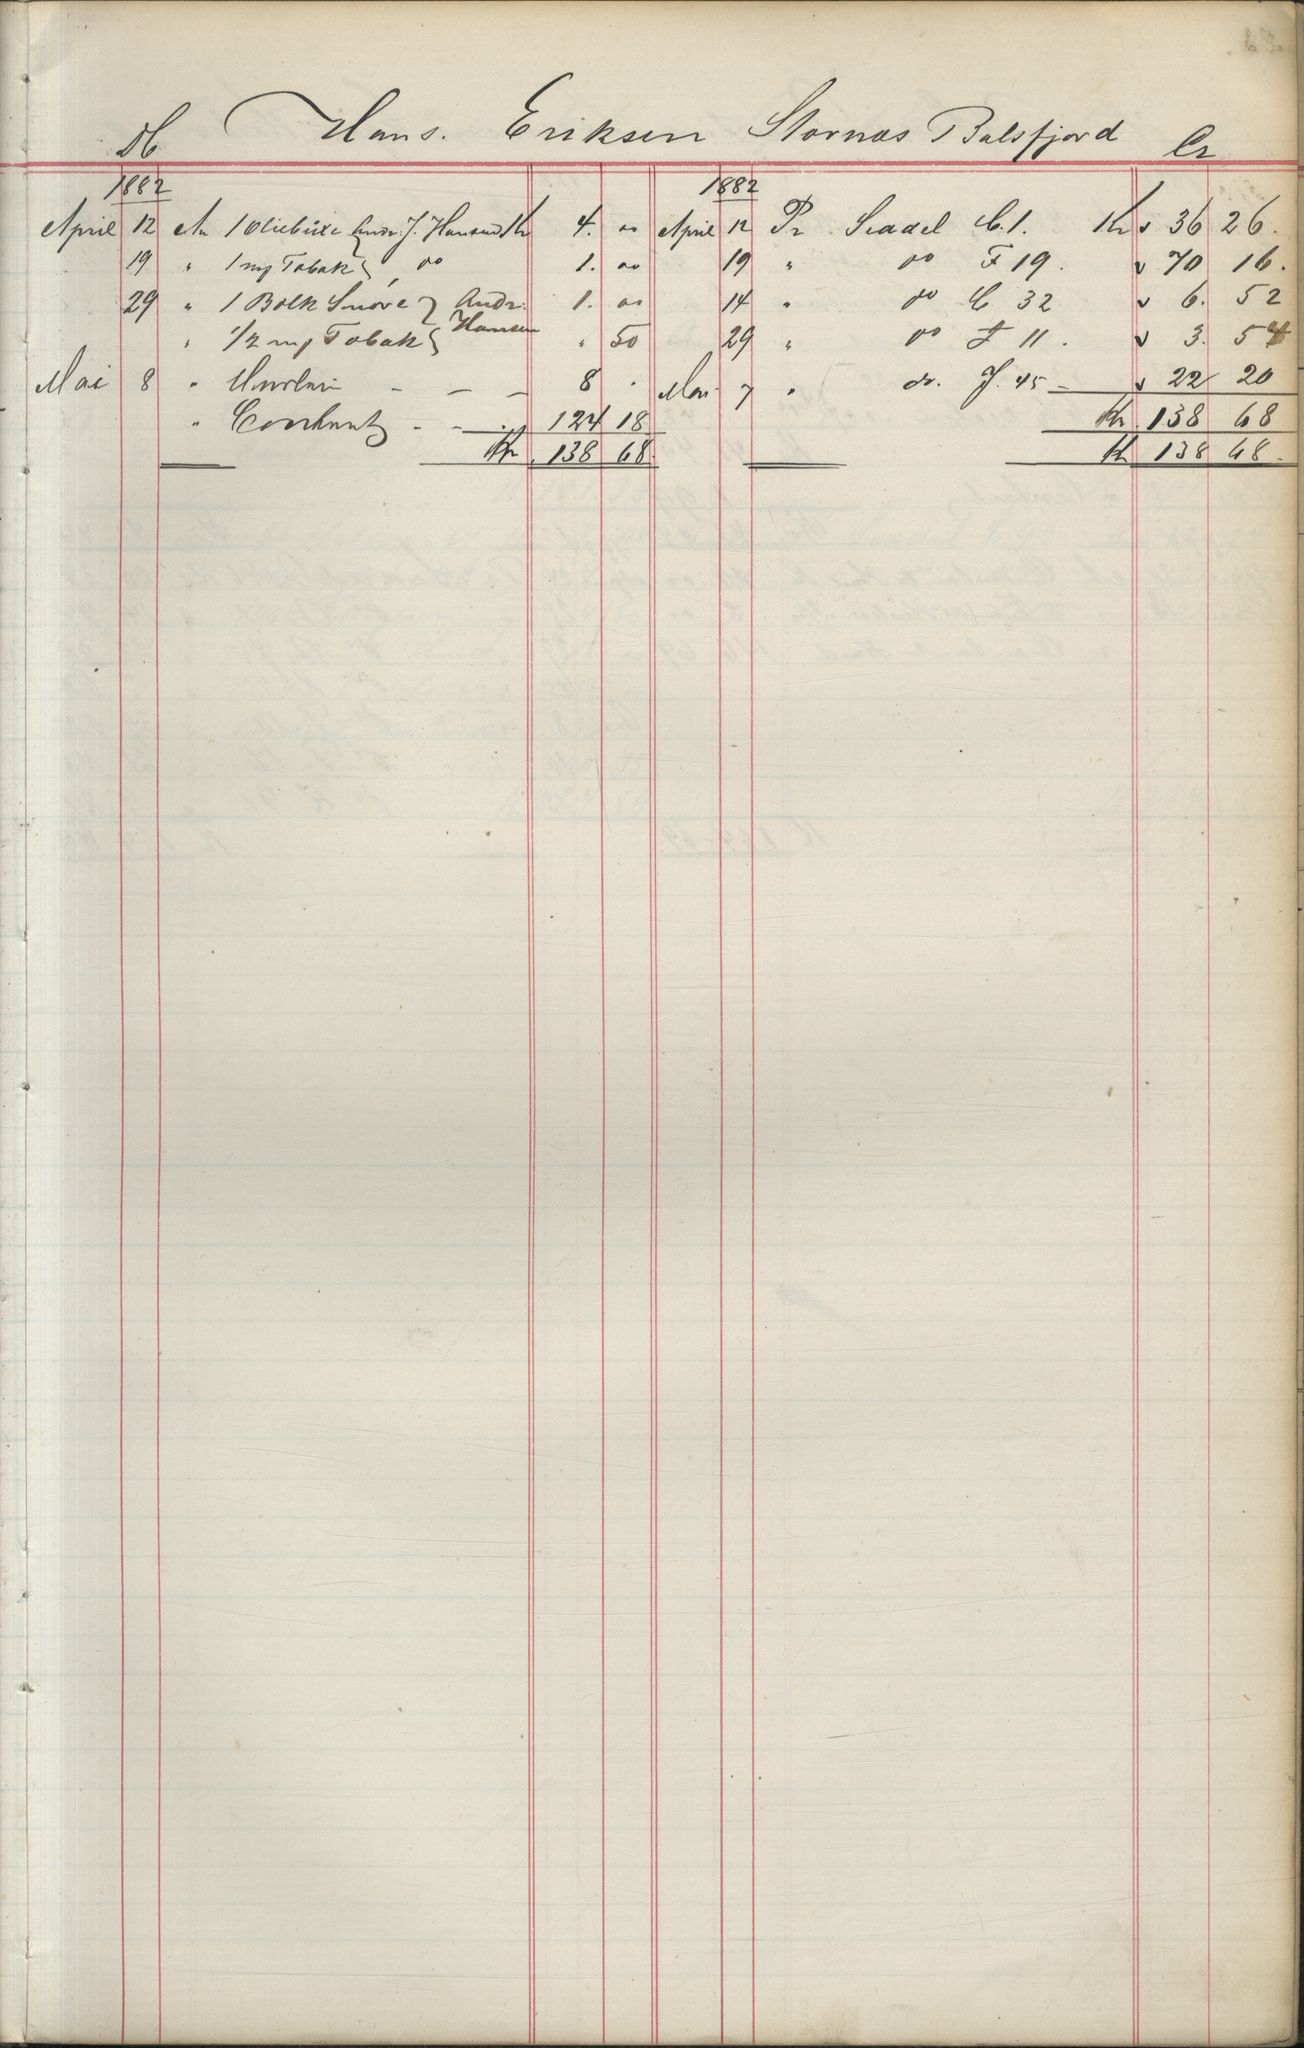 Hans. Eriksen Stornæs Balsfjord
Db Cr
1882 1882
April 12 An 1 Oliebuxe Andr. J. Hansen Kr 4. oo April 12 Pr Seddel C. 1. Kr v 36 26.
19 " 1 mg Tobak do 1. oo 19 " do F 19. v 70 16.
29 " 1 Bolk Snöre Andr. 1. oo 14 " do C 32 v 6. 52
" 1/2 mg Tobak Hansen " 50 29 " do F 11. v 3. 54
Mai 8 " - - - 8 " Mai 7 " do. J. 45 - v 22 20
" Contant - - 124 18 Kr 138 68
Kr 138 68 Kr 138 68